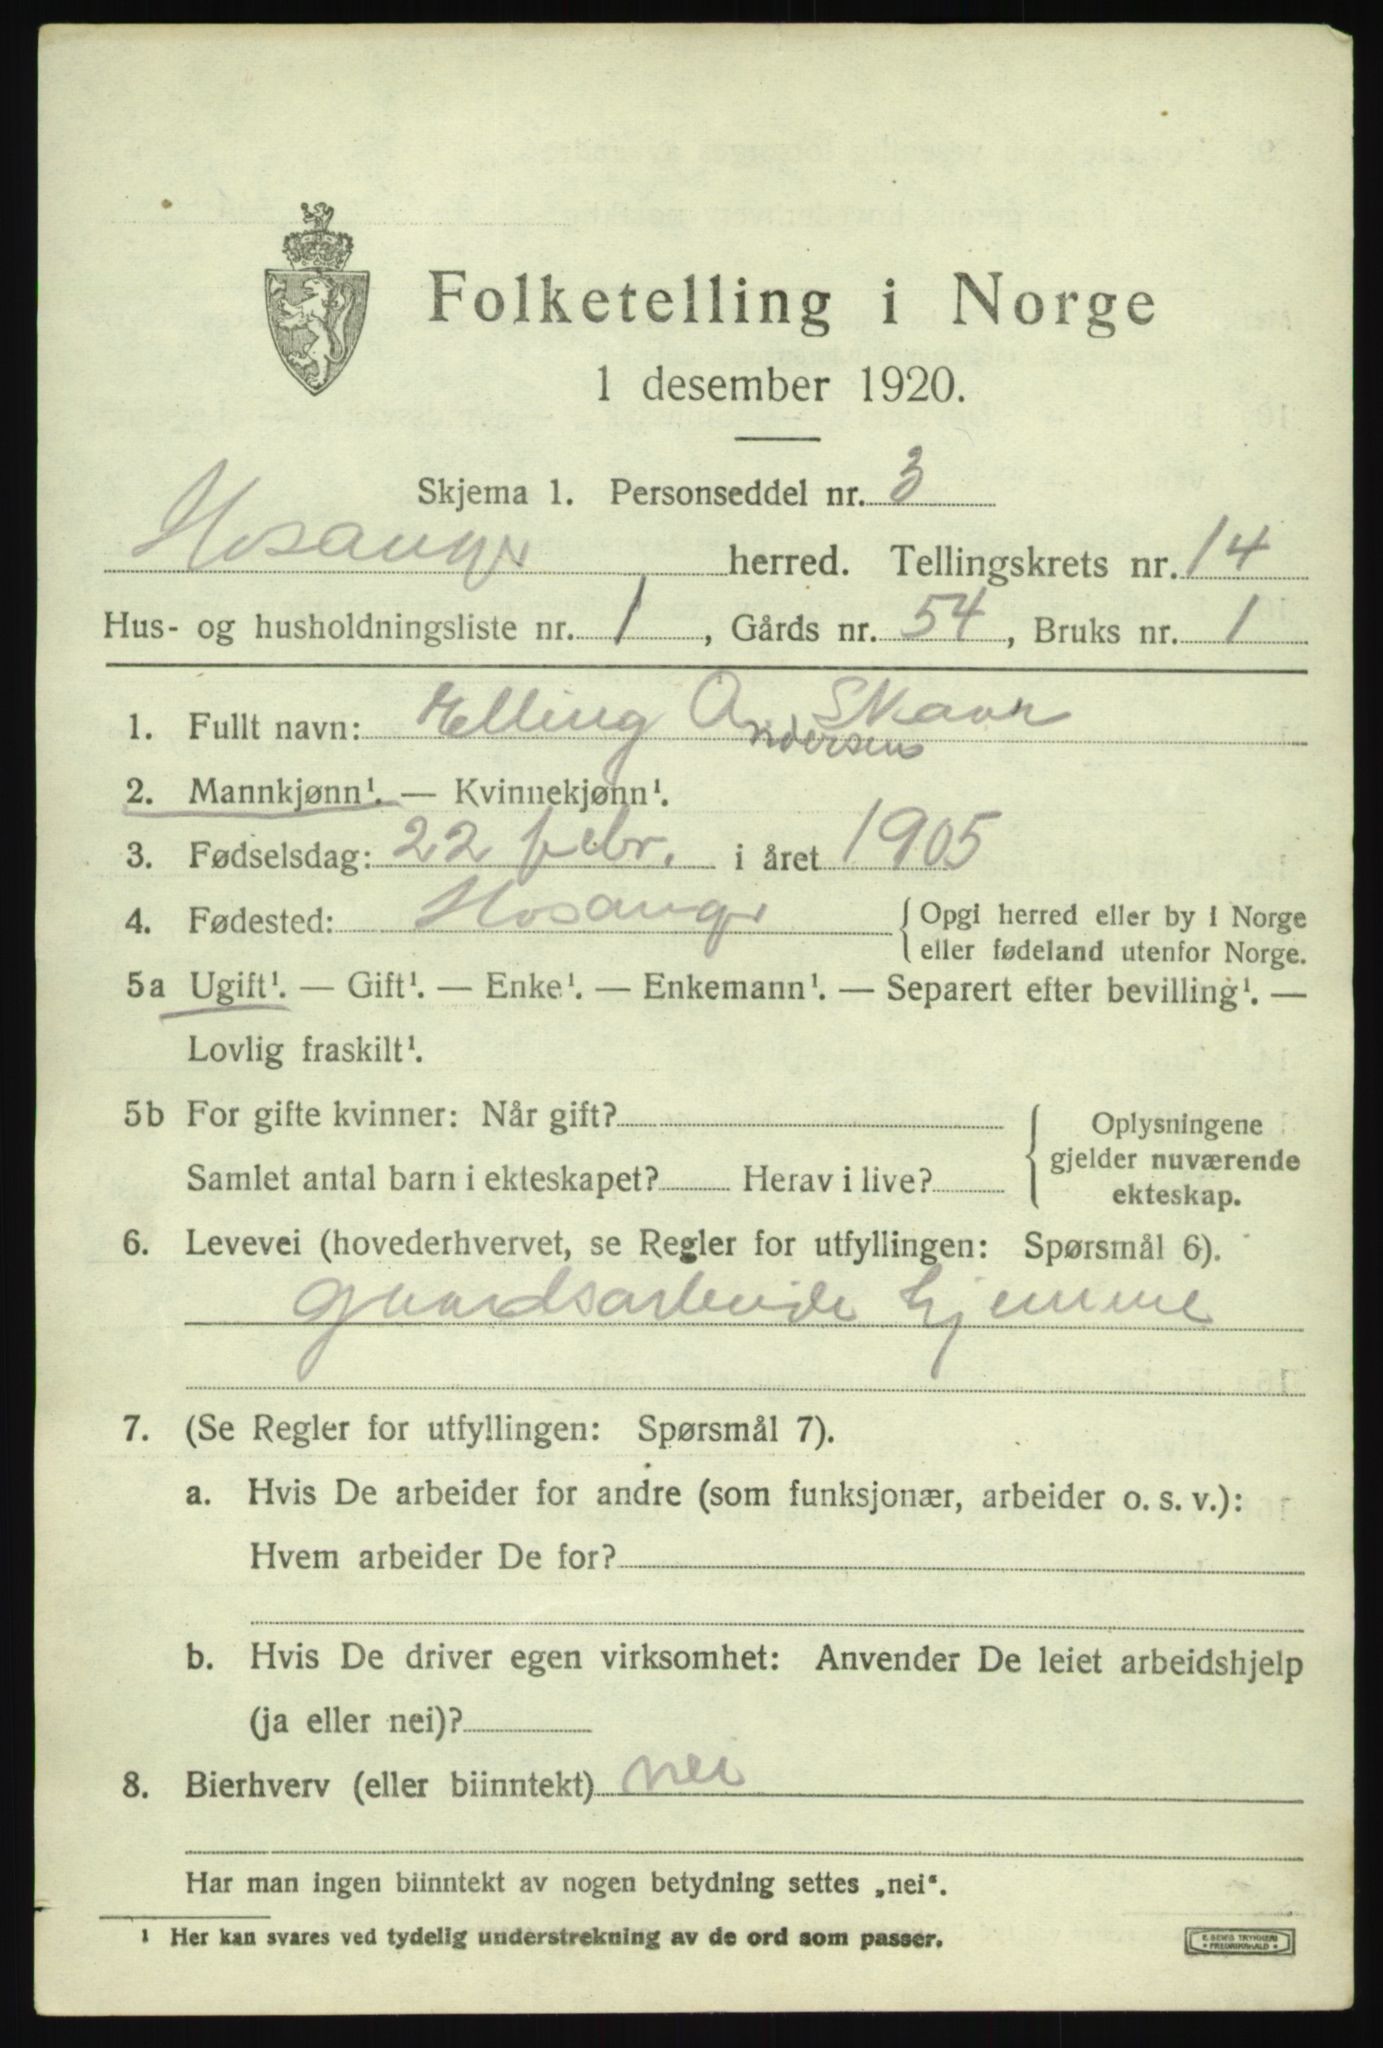 Folketelling i Norge
1 desember 1920.
Skjema 1. Personseddel nr. 3
Hosanger herred. Tellingskrets nr. 14
Hus- og husholdningsliste nr. 1, Gårds nr. 54, Bruks nr. 1
1. Fullt navn: Elling Andersen Skaar
2. Mannkjønn¹. — Kvinnekjønn¹.
3. Fødselsdag: 22 febr. i året 1905
4. Fødested: Hosanger {Opgi herred eller by i Norge
eller fødeland utenfor Norge.
5a Ugift¹. — Gift¹. — Enke¹. — Enkemann¹. — Separert efter bevilling¹. —
Lovlig fraskilt¹.
5b For gifte kvinner: Når gift?
Samlet antal barn i ekteskapet? Herav i live?
{Oplysningene
gjelder nuværende
ekteskap.
6. Levevei (hovederhvervet, se Regler for utfyllingen: Spørsmål 6).
gaardsarbeide hjemme
7. (Se Regler for utfyllingen: Spørsmål 7).
a. Hvis De arbeider for andre (som funksjonær, arbeider o. s. v.):
Hvem arbeider De for?
b. Hvis De driver egen virksomhet: Anvender De leiet arbeidshjelp
(ja eller nei)?
8. Bierhverv (eller biinntekt) nei
Har man ingen biinntekt av nogen betydning settes „nei“.
¹ Her kan svares ved tydelig understrekning av de ord som passer.